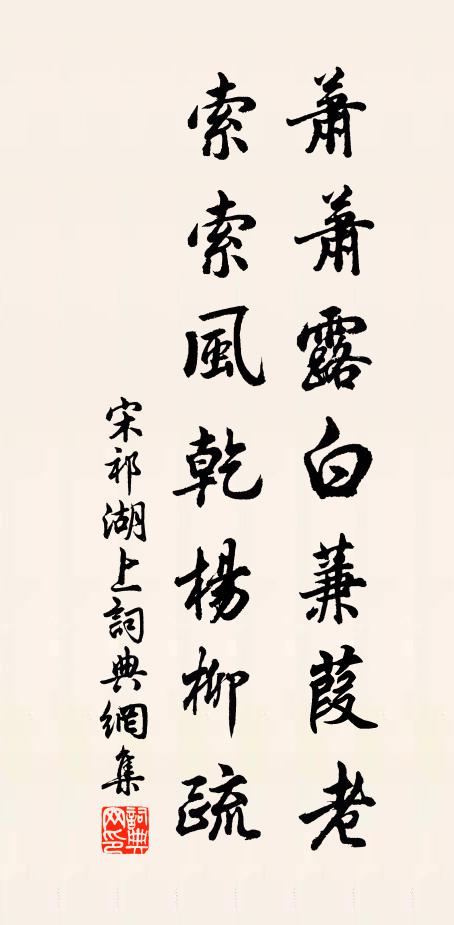 蕭蕭露白蒹葭老
索索風乾楊柳疏
宋祁湖上詞典網集
詞典网印